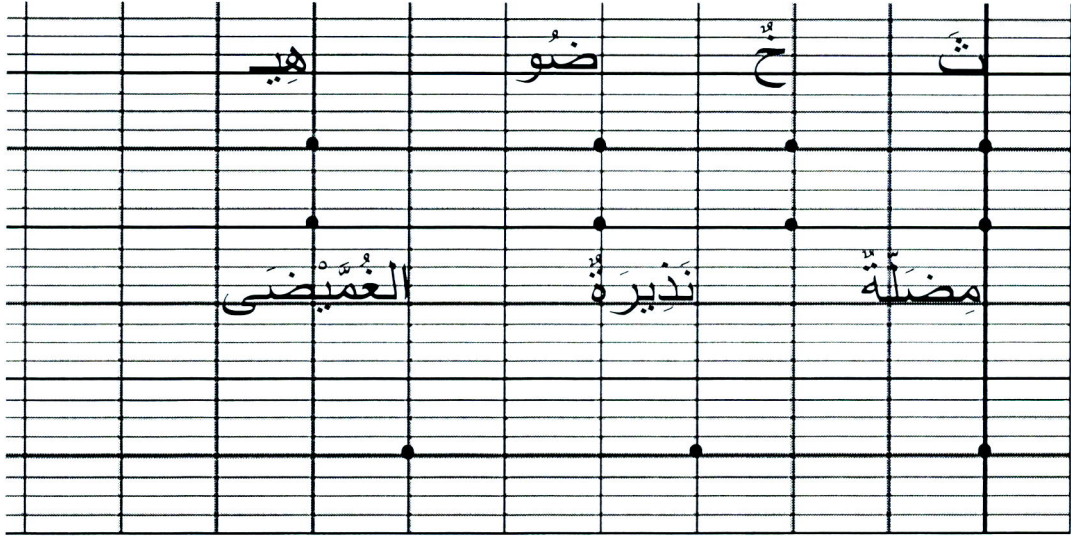 ثَـ خٌّ ضُو هِيـ
مِضَلَّةٌ نَذِيرَةٌ الغُمَّيْضَى